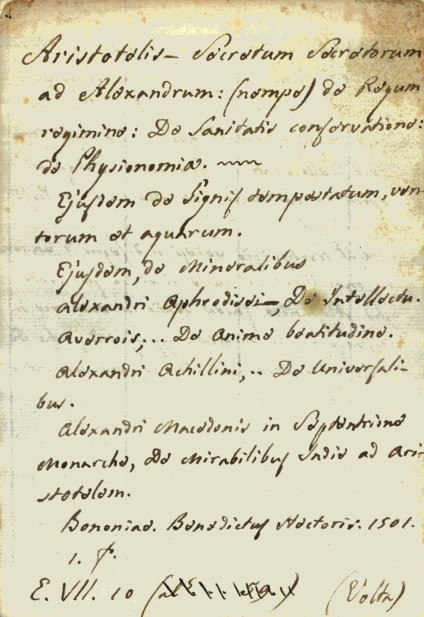 Aristotelis – Secretum Secretorum
ad Alexandrum: (nempe) de Regum
regimine: De Sanitatis conservatione:
de Physionomia.
Ejusdem de Signis tempestatum, ven-
torum et aquarum.
Ejusdem, de Mineralibus
Alexandri Aphrodisei –, De Intellectu.
Averrois, .. De Anime beatitudine.
Alexandri Achillini, .. De Universali-
bus.
Alexandri Macedonis in Septentrione
Monarche, De Mirabilibus Indie ad Ari-
stotelem.
Bononiae. Benedictus Hectoris. 1501.
1. f.
E. VII. 10 (Volta)